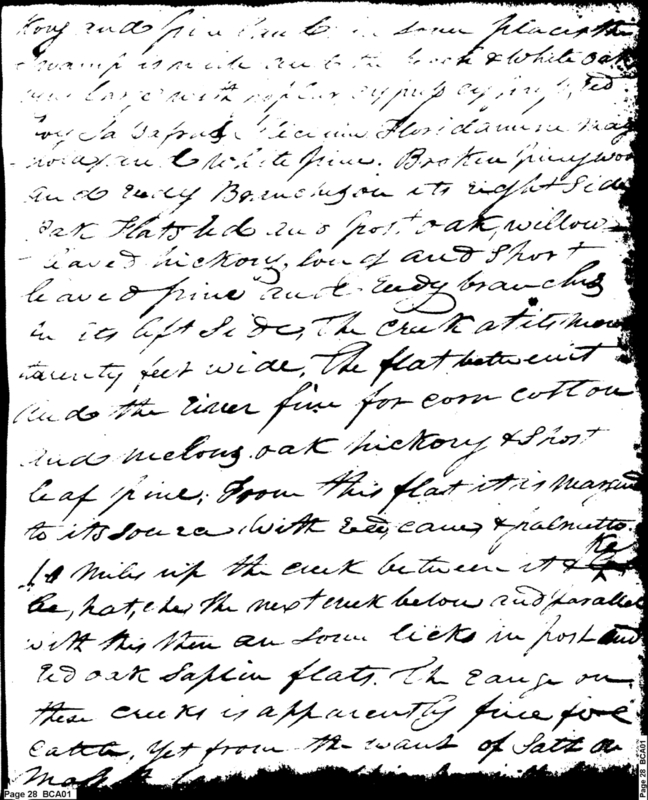 and pine land in some places the
swamp is wide and the beech & white oak
very large with poplar, cypress, red
bay, sassafras, Illicium Floridanum, mag
nolia, and white pine. Broken piney woods
and reedy Branches on its right side
oak flats red and post oak, willow
leaved hickory, long and short
leaved pine and reedy branches
in its left side, the creek at its mouth
twenty feet wide, The flat between it
and the river fine for corn cotton
and melons, oak hickory & short
leaf pine; From this flat it is margined
to its source with reed, cane, & palmetto.
10 miles up the creek between it & Ke
be, hat, che, the next creek below and parallel
with this there are some licks in post and
red oak saplin flats. The range on
these creeks is apparently fine for
cattle, yet from the want of salt or
Page 28 BCA01
Page 28 BCA01